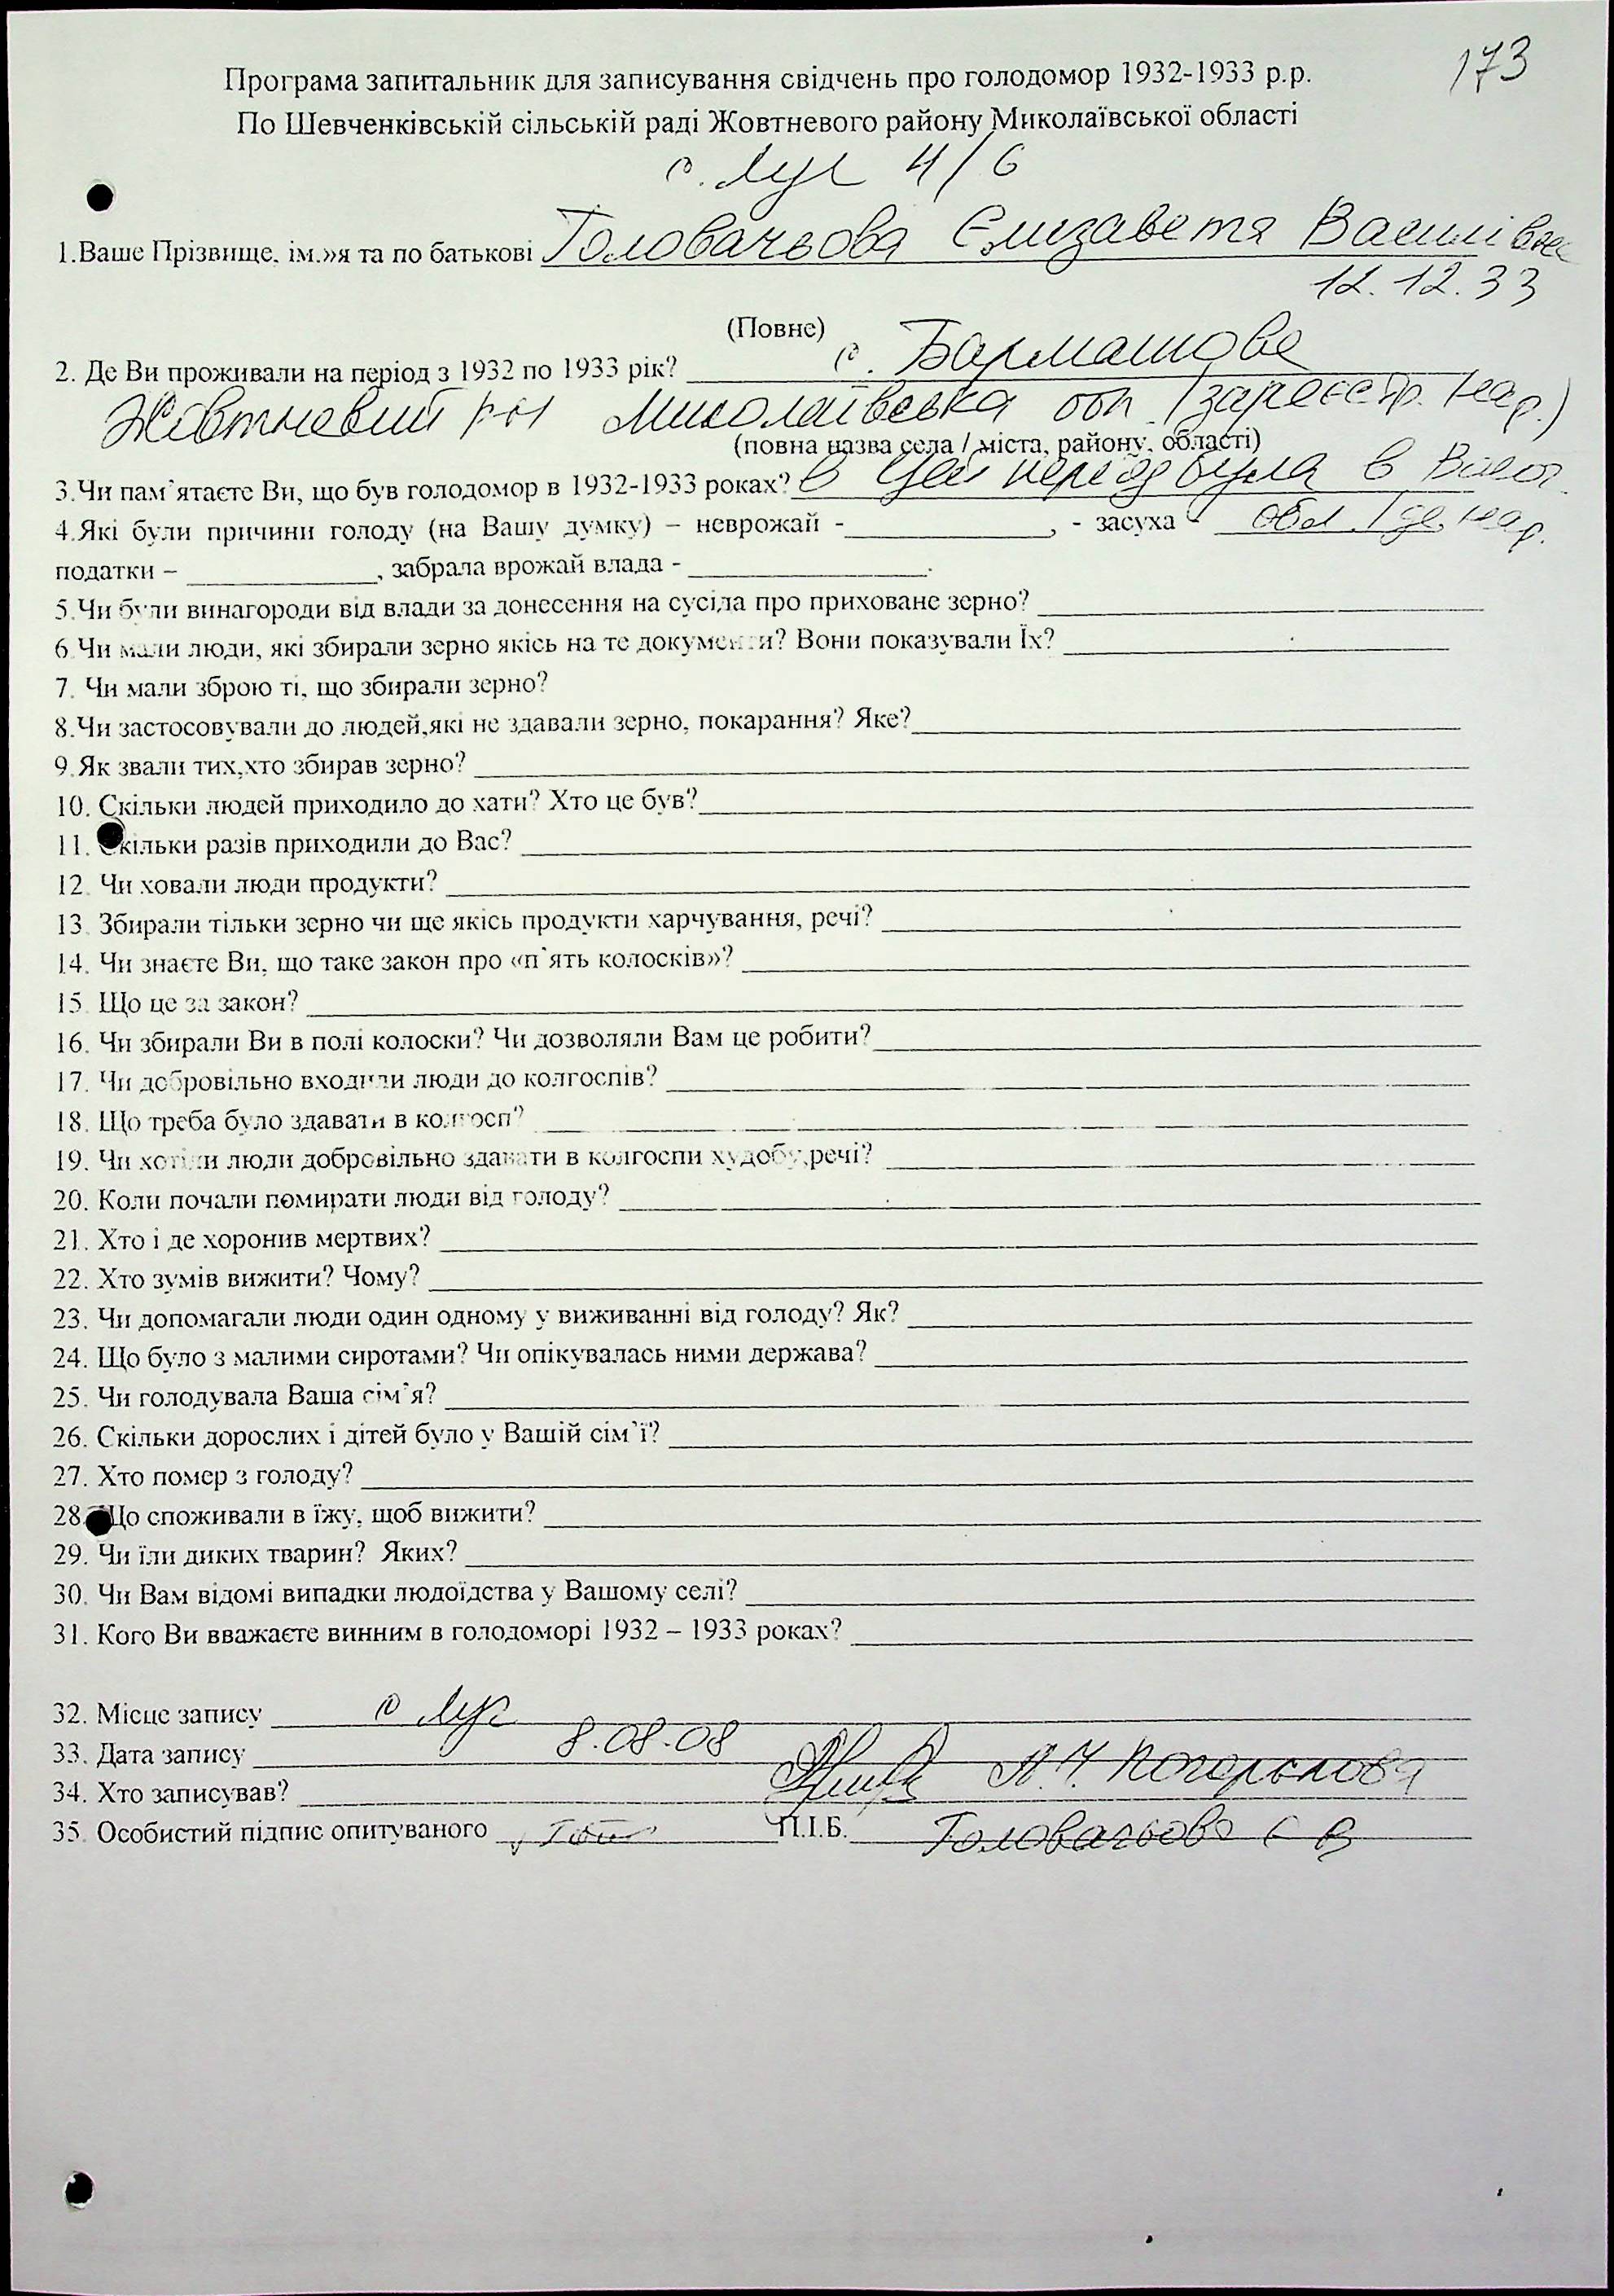 173
Програма запитальник для записування свідчень про голодомор 1932-1933 р.р.
По Шевченківській сільській раді Жовтневого району Миколаївської області
с. Луч 4/6
1.Ваше Прізвище, ім.»я та по батькові Головачьова Єлизавета Василівна
12.12.33
(Повне)
2. Де Ви проживали на період з 1932 по 1933 рік? с. Бармашове
Жовтневий р-н Миколаївська обл (зареєстр. нар.)
(повна назва села / міста, району, області)
3.Чи пам'ятаєте Ви, що був голодомор в 1932-1933 роках? В цей період була в
4.Які були причини голоду (на Вашу думку) – неврожай - ____, - засуха - обл. нар.
податки – ____, забрала врожай влада - ____.
5.Чи були винагороди від влади за донесення на сусіда про приховане зерно?
6.Чи мали люди, які збирали зерно якісь на те документи? Вони показували Їх?
7. Чи мали зброю ті, що збирали зерно?
8.Чи застосовували до людей,які не здавали зерно, покарання? Яке?
9.Як звали тих,хто збирав зерно?
10. Скільки людей приходило до хати? Хто це був?
11. Скільки разів приходили до Вас?
12. Чи ховали люди продукти?
13. Збирали тільки зерно чи ще якісь продукти харчування, речі?
14. Чи знаєте Ви, що таке закон про «п`ять колосків»?
15. Що це за закон?
16. Чи збирали Ви в полі колоски? Чи дозволяли Вам це робити?
17. Чи добровільно входили люди до колгоспів?
18. Що треба було здавати в колгосп?
19. Чи хотіли люди добровільно здавати в колгоспи худобу,речі?
20. Коли почали помирати люди від голоду?
21. Хто і де хоронив мертвих?
22. Хто зумів вижити? Чому?
23. Чи допомагали люди один одному у виживанні від голоду? Як?
24. Що було з малими сиротами? Чи опікувалась ними держава?
25. Чи голодувала Ваша сім`я?
26. Скільки дорослих і дітей було у Вашій сім`ї?
27. Хто помер з голоду?
28. Що споживали в їжу, щоб вижити?
29. Чи їли диких тварин? Яких?
30. Чи Вам відомі випадки людоїдства у Вашому селі?
31. Кого Ви вважаєте винним в голодоморі 1932 – 1933 роках?
32. Місце запису с Луч
33. Дата запису 8.08.08
34. Хто записував?
35. Особистий підпис опитуваного ____ П.І.Б. Головачьова Є В